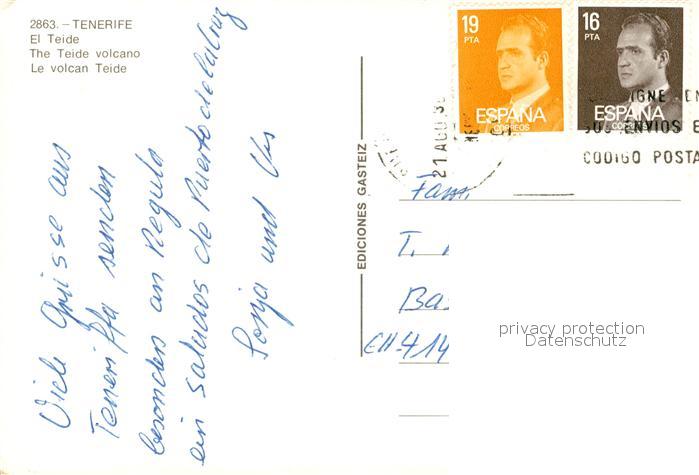 2863. - TENERIFE
El Teide
The Teide volcano
Le volcan Teide
Viele Grüsse aus
Teneriffa senden
besonders an Regula
ein saludos de Puerto de la Cruz
Sonja und Urs
EDICIONES GASTEIZ
19
PTA
ESPAÑA
CORREOS
16
PTA
ESPAÑA
CORREOS
21 AGO
IGNE EN
SUS ENVIOS E
CODIGO POSTA
Fam.
T.
Ba
CH-414
privacy protection
Datenschutz